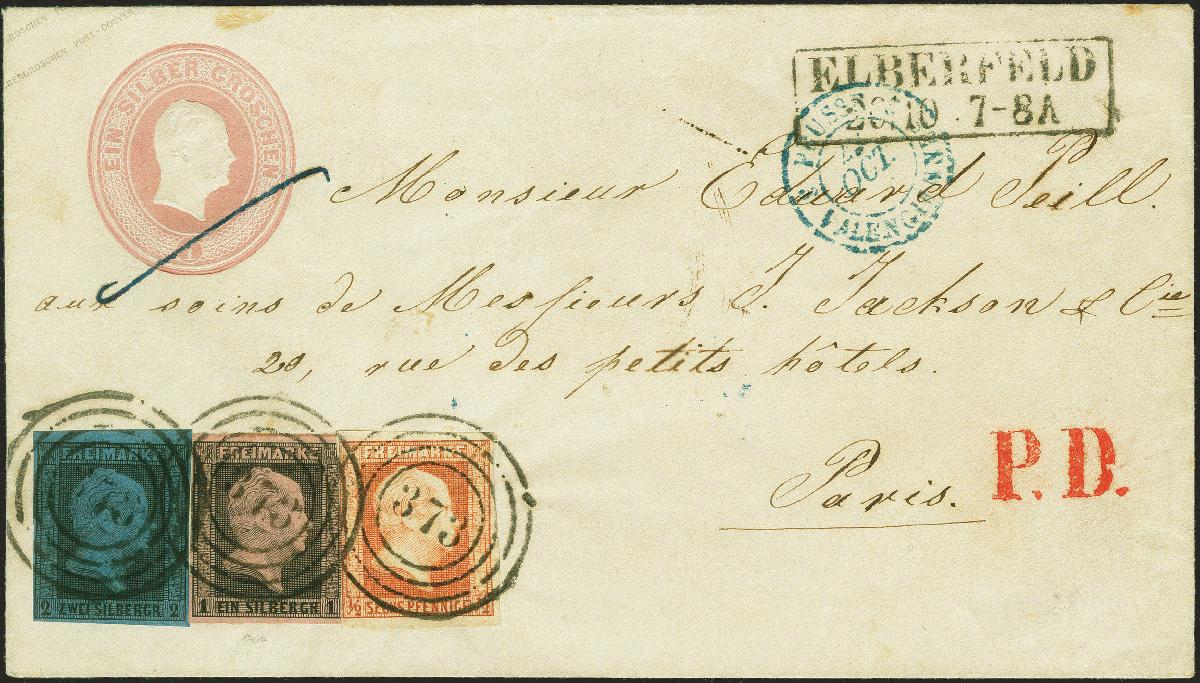 GROSCHEN POST-COUVER
EIN SILBER GROSCHEN
1
ELBERFELD
20 10 7-8A
PRUSSE
OCT.
Monsieur Eduard Peill.
aux soins de Messieurs J. Jackson & Cie
20, rue des petits hôtels.
Paris.
P.D.
FREIMARKE
2 ZWEI SILBERGR 2
FREIMARKE
373
1 EIN SILBERGR 1
FREIMARKE
373
½ SECHS PFENNIGE